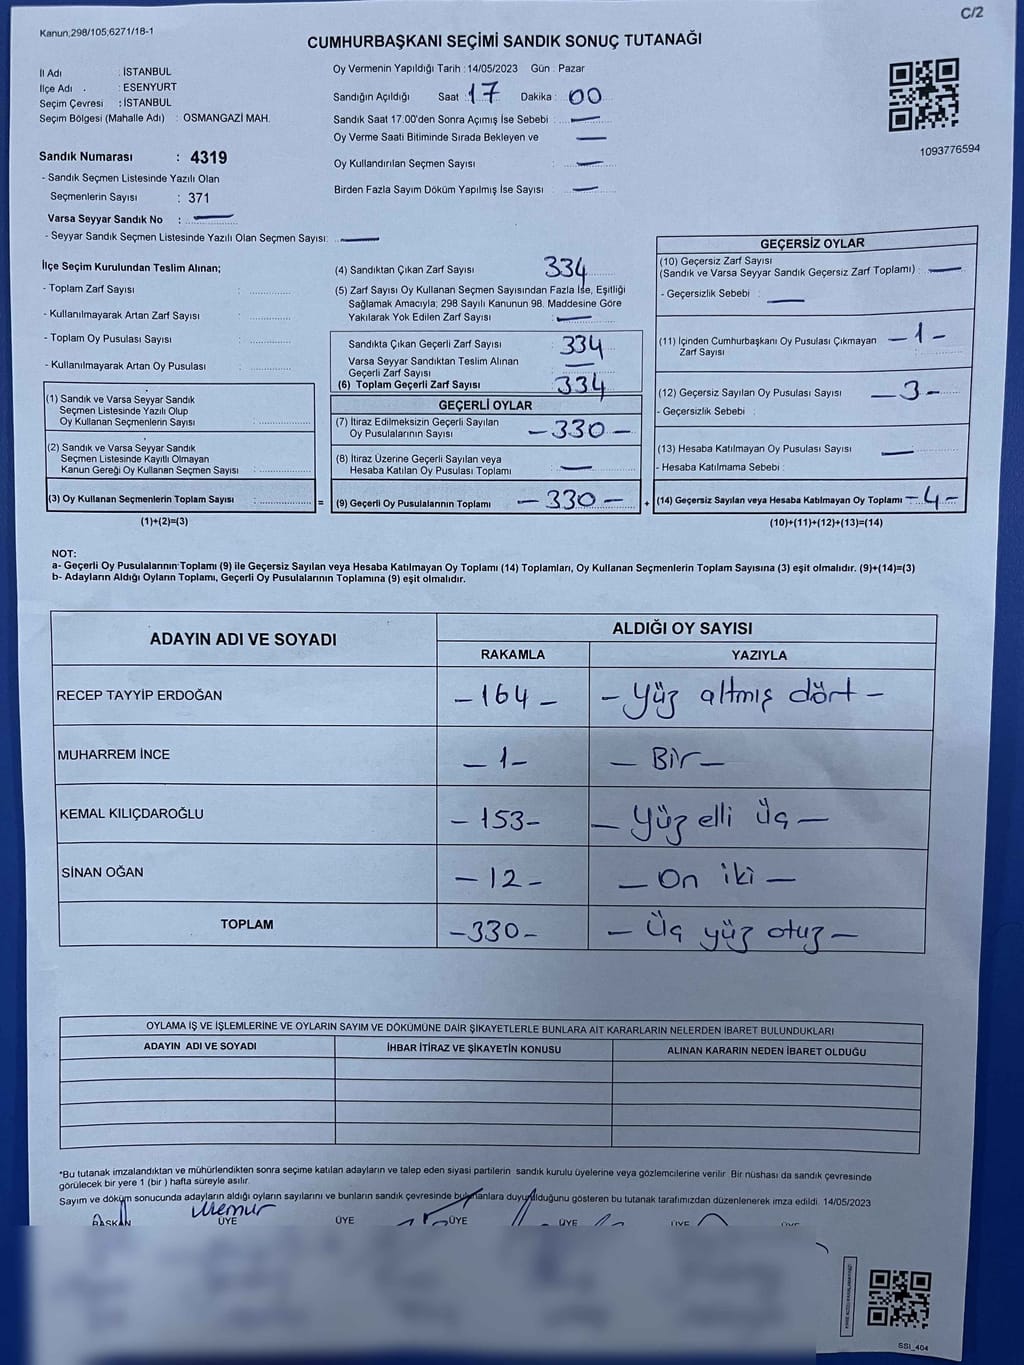 C/2
Kanun;298/105;6271/18-1
CUMHURBAŞKANI SEÇİMİ SANDIK SONUÇ TUTANAĞI
İl Adı : İSTANBUL
İlçe Adı : ESENYURT
Seçim Çevresi : İSTANBUL
Seçim Bölgesi (Mahalle Adı) : OSMANGAZİ MAH.
Sandık Numarası : 4319
- Sandık Seçmen Listesinde Yazılı Olan
Seçmenlerin Sayısı : 371
Varsa Seyyar Sandık No :
- Seyyar Sandık Seçmen Listesinde Yazılı Olan Seçmen Sayısı:
Oy Vermenin Yapıldığı Tarih : 14/05/2023 Gün : Pazar
Sandığın Açıldığı Saat : 17 Dakika : 00
Sandık Saat 17:00'den Sonra Açımış İse Sebebi :
Oy Verme Saati Bitiminde Sırada Bekleyen ve
Oy Kullandırılan Seçmen Sayısı :
Birden Fazla Sayım Döküm Yapılmış İse Sayısı :
1093776594
İlçe Seçim Kurulundan Teslim Alınan;
- Toplam Zarf Sayısı :
- Kullanılmayarak Artan Zarf Sayısı :
- Toplam Oy Pusulası Sayısı :
- Kullanılmayarak Artan Oy Pusulası :
(1) Sandık ve Varsa Seyyar Sandık
Seçmen Listesinde Yazılı Olup
Oy Kullanan Seçmenlerin Sayısı :
(2) Sandık ve Varsa Seyyar Sandık
Seçmen Listesinde Kayıtlı Olmayan
Kanun Gereği Oy Kullanan Seçmen Sayısı :
(3) Oy Kullanan Seçmenlerin Toplam Sayısı :
(1)+(2)=(3)
=
(4) Sandıktan Çıkan Zarf Sayısı 334
(5) Zarf Sayısı Oy Kullanan Seçmen Sayısından Fazla İse, Eşitliği
Sağlamak Amacıyla; 298 Sayılı Kanunun 98. Maddesine Göre
Yakılarak Yok Edilen Zarf Sayısı :
Sandıkta Çıkan Geçerli Zarf Sayısı : 334
Varsa Seyyar Sandıktan Teslim Alınan
Geçerli Zarf Sayısı :
(6) Toplam Geçerli Zarf Sayısı : 334
GEÇERLİ OYLAR
(7) İtiraz Edilmeksizin Geçerli Sayılan
Oy Pusulalarının Sayısı : -330-
(8) İtiraz Üzerine Geçerli Sayılan veya
Hesaba Katılan Oy Pusulası Toplamı :
(9) Geçerli Oy Pusulalarının Toplamı -330-
+
GEÇERSİZ OYLAR
(10) Geçersiz Zarf Sayısı
(Sandık ve Varsa Seyyar Sandık Geçersiz Zarf Toplamı) :
- Geçersizlik Sebebi :
(11) İçinden Cumhurbaşkanı Oy Pusulası Çıkmayan
Zarf Sayısı : -1-
(12) Geçersiz Sayılan Oy Pusulası Sayısı : -3-
- Geçersizlik Sebebi :
(13) Hesaba Katılmayan Oy Pusulası Sayısı :
- Hesaba Katılmama Sebebi :
(14) Geçersiz Sayılan veya Hesaba Katılmayan Oy Toplamı -4-
(10)+(11)+(12)+(13)=(14)
NOT:
a- Geçerli Oy Pusulalarının Toplamı (9) ile Geçersiz Sayılan veya Hesaba Katılmayan Oy Toplamı (14) Toplamları, Oy Kullanan Seçmenlerin Toplam Sayısına (3) eşit olmalıdır. (9)+(14)=(3)
b- Adayların Aldığı Oyların Toplamı, Geçerli Oy Pusulalarının Toplamına (9) eşit olmalıdır.
ADAYIN ADI VE SOYADI ALDIĞI OY SAYISI
RAKAMLA YAZIYLA
RECEP TAYYİP ERDOĞAN -164- -Yüz altmış dört-
MUHARREM İNCE -1- -Bir-
KEMAL KILIÇDAROĞLU -153- -Yüz elli üç-
SİNAN OĞAN -12- -On iki-
TOPLAM -330- -Üç yüz otuz-
OYLAMA İŞ VE İŞLEMLERİNE VE OYLARIN SAYIM VE DÖKÜMÜNE DAİR ŞİKAYETLERLE BUNLARA AİT KARARLARIN NELERDEN İBARET BULUNDUKLARI
ADAYIN ADI VE SOYADI İHBAR İTİRAZ VE ŞİKAYETİN KONUSU ALINAN KARARIN NEDEN İBARET OLDUĞU
*Bu tutanak imzalandıktan ve mühürlendikten sonra seçime katılan adayların ve talep eden siyasi partilerin sandık kurulu üyelerine veya gözlemcilerine verilir. Bir nüshası da sandık çevresinde
görülecek bir yere 1 (bir ) hafta süreyle asılır.
Sayım ve döküm sonucunda adayların aldığı oyların sayılarını ve bunların sandık çevresinde bulunanlara duyurulduğunu gösteren bu tutanak tarafımızdan düzenlenerek imza edildi. 14/05/2023
Memur
BAŞKAN ÜYE ÜYE ÜYE ÜYE ÜYE ÜYE
SSI_404